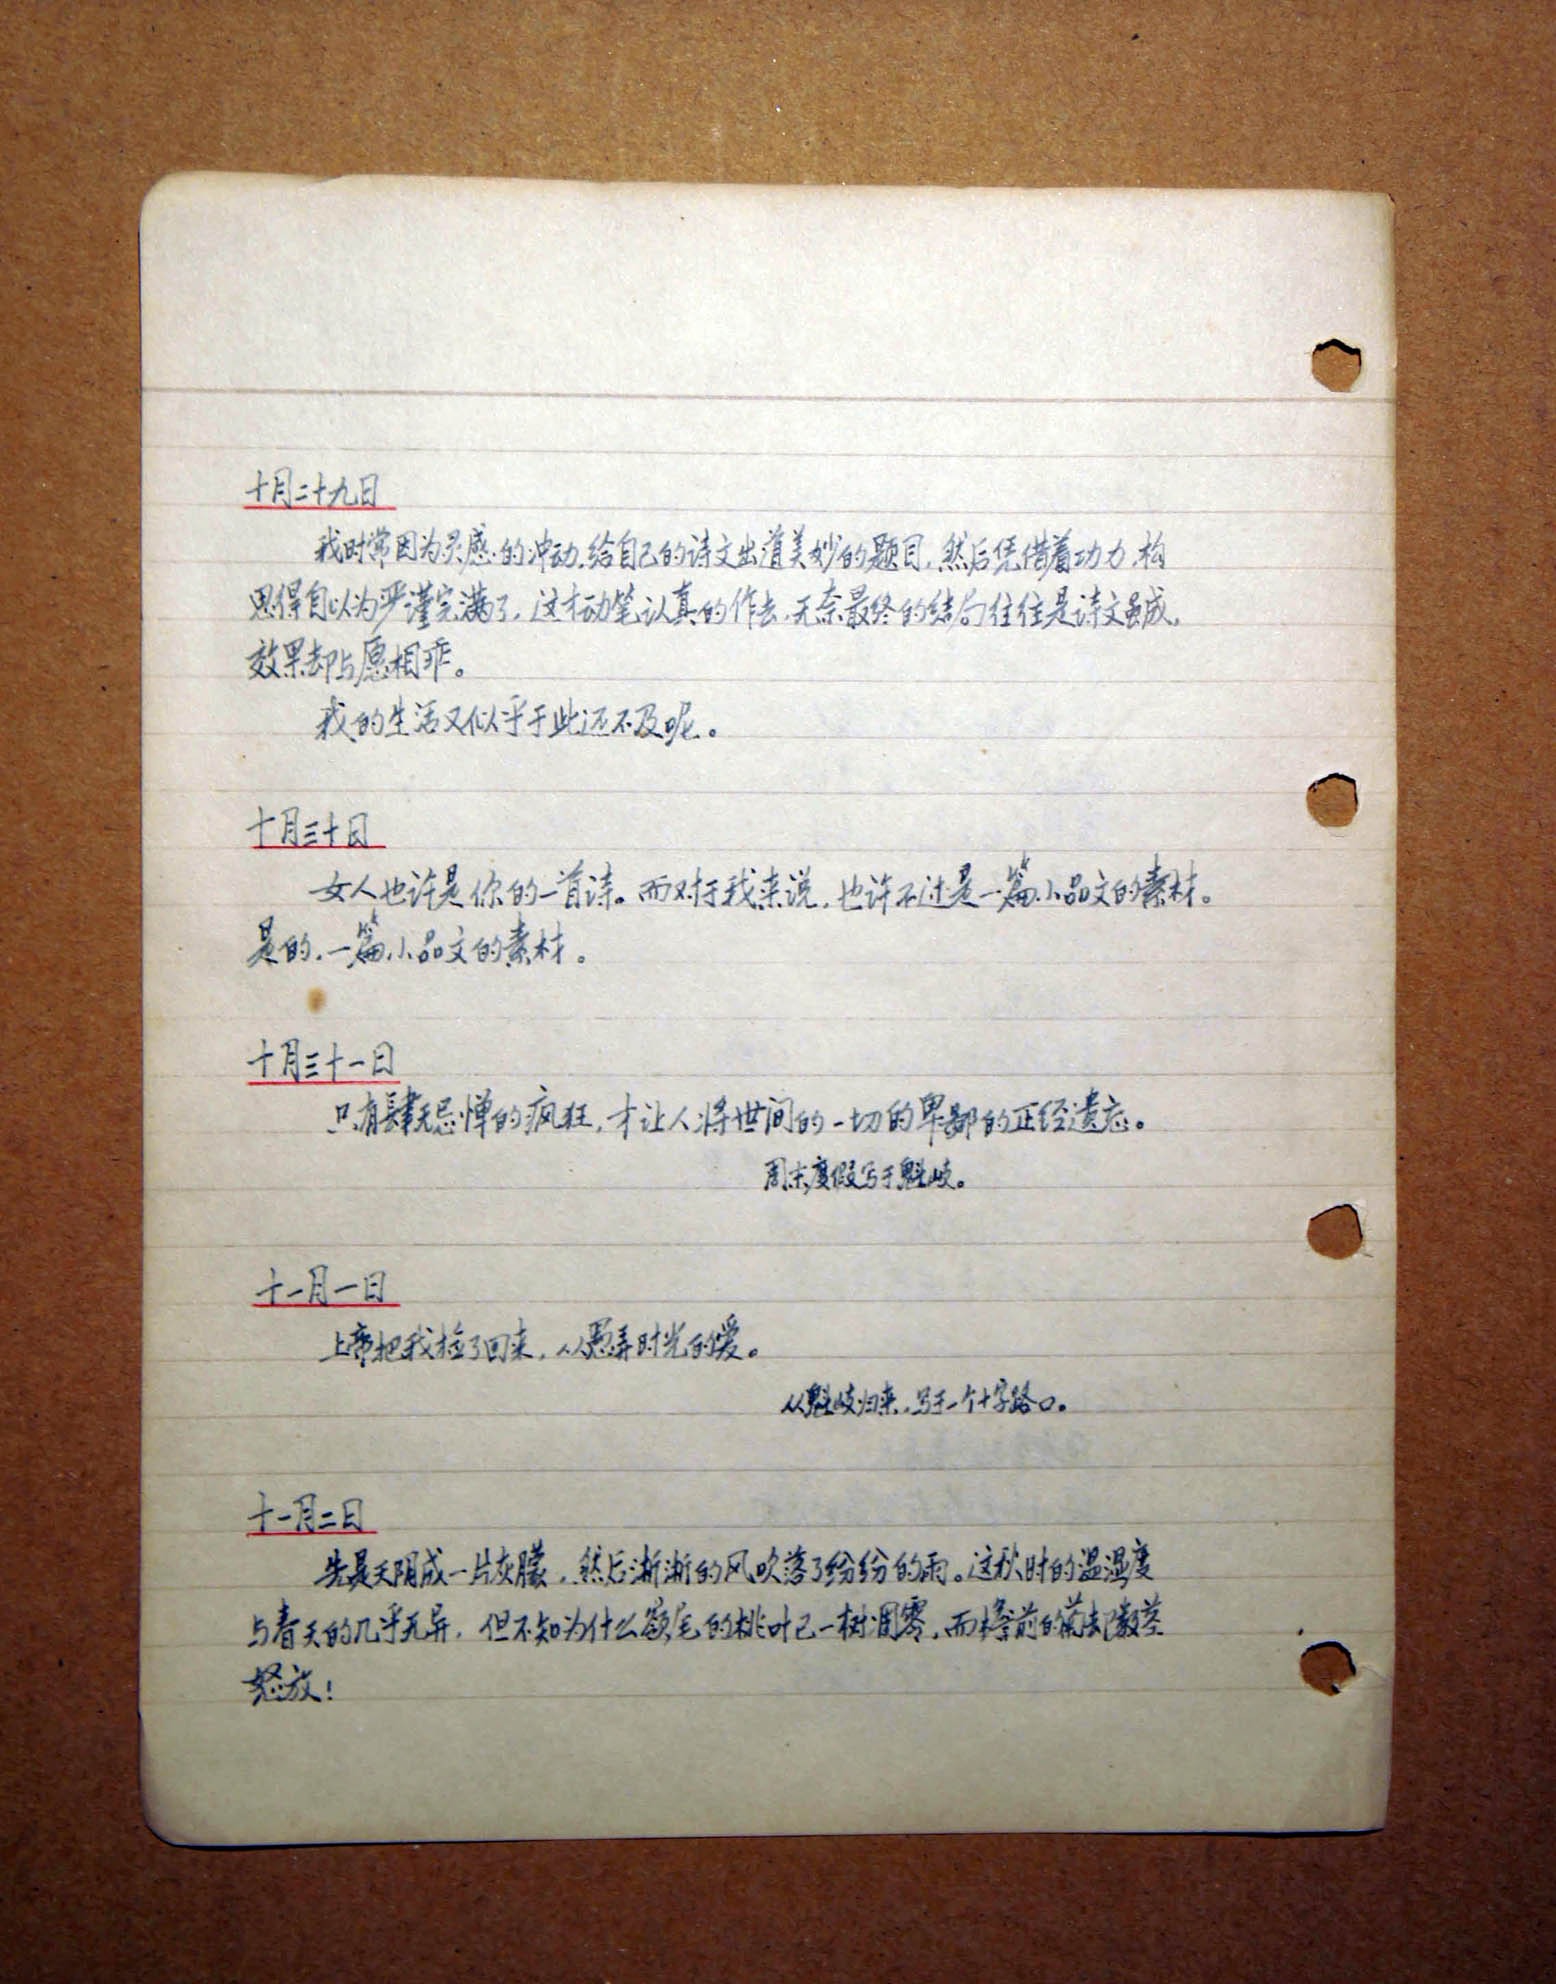 十月二十九日
我时常因为灵感的冲动,给自己的诗文出道美妙的题目,然后凭借着功力,构
思得自以为严谨完满了,这才动笔认真的作去,无奈最终的结局往往是诗文虽成,
效果却与愿相乖。
我的生活又似乎于此还不及呢。
十月三十日
女人也许是你的一首诗。而对于我来说,也许不过是一篇小品文的素材。
是的,一篇小品文的素材。
十月三十一日
只有肆无忌惮的疯狂,才让人将世间的一切的卑鄙的正经遗忘。
周末度假写于魁岐。
十一月一日
上帝把我捡了回来,从愚弄时光的爱。
从魁岐归来,写于一个十字路口。
十一月二日
先是天阴成一片灰朦,然后渐渐的风吹落了纷纷的雨。这秋时的温湿度
与春天的几乎无异,但不知为什么 的桃叶已一树凋零,而 前的菊却
怒放!